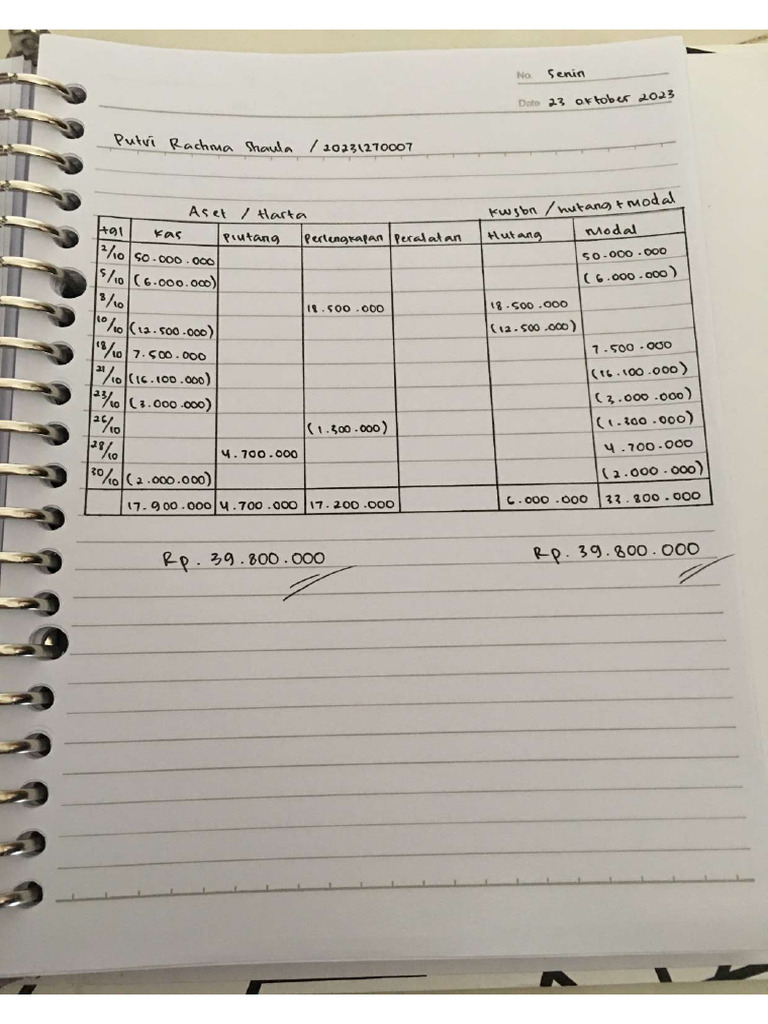 No. Senin
Date 23 Oktober 2023
Putri Rachma Shaula / 20231270007
Aset / Harta Kwjbn / hutang + Modal
tgl Kas Piutang Perlengkapan Peralatan Hutang Modal
2/10 50.000.000 50.000.000
5/10 (6.000.000) (6.000.000)
8/10 18.500.000 18.500.000
10/10 (12.500.000) (12.500.000)
18/10 7.500.000 7.500.000
21/10 (16.100.000) (16.100.000)
23/10 (3.000.000) (3.000.000)
26/10 (1.300.000) (1.300.000)
28/10 4.700.000 4.700.000
30/10 (2.000.000) (2.000.000)
17.900.000 4.700.000 17.200.000 6.000.000 33.800.000
Rp. 39.800.000 Rp. 39.800.000